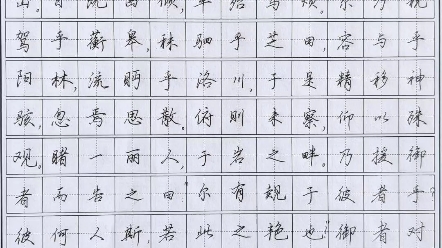 驾乎蘅皋,秣驷乎芝田,容与乎
阳林,流眄乎洛川,于是精移神
骇,忽焉思散。俯则未察,仰以殊
观。睹一丽人,于岩之畔。乃援御
者而告之曰“尔有觌于彼者乎?
彼何人斯,若此之艳也!”御者对